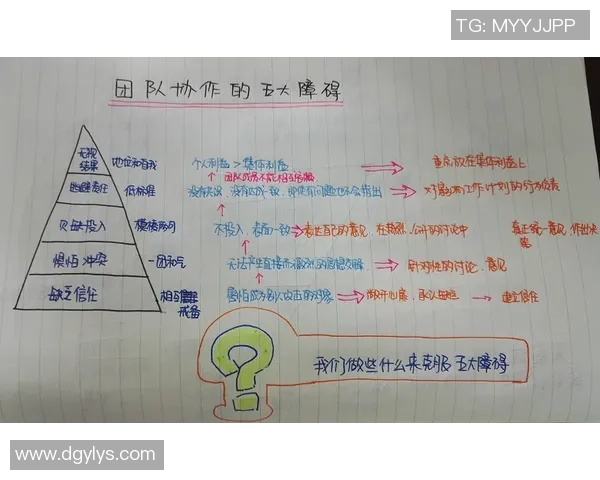 TG: MYYJJPP
团队协作的五大障碍
无视结果 地位和自我 个人利益>集体利益 重点放在集体利益上
团队成员不能相互
逃避责任 低标准 没有 没有达成一致,即使有问题也不会指出 对影响工作计划的行为负责
欠缺投入 模棱两可 不投入,表面一致 表达自己的意见,在 公开的讨论中 真正统一意见,作出决策
惧怕冲突 一团和气 无法产生直接而激烈的思想交锋 针对性的讨论,意见
缺乏信任 相互 戒备 害怕成为别人攻击的对象 敞开心扉,承认 建立信任
? 我们做些什么来克服五大障碍
www.dgylys.com